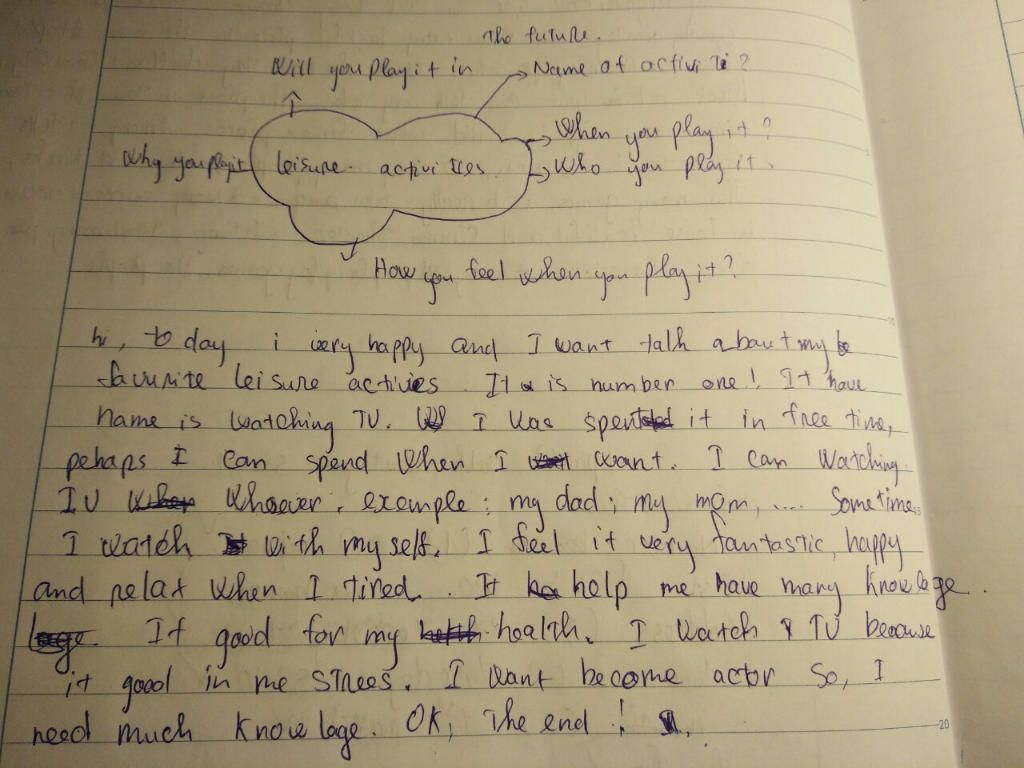 The future.
Will you play it in
Name of activi ti?
When you play it?
Why you play it
leisure activities
Who you play it.
How you feel when you play it?
hi, to day i very happy and I want talk about my
favurite leisure activies. It is number one! It have
name is watching TV. I was spent it in free time,
pehaps I can spend when I want. I can watching
TV whoever: example: my dad; my mom, .... Sometime
I watch with my self. I feel it very fantastic, happy
and relax when I tired. It help me have many knowlege.
It good for my health. I watch TV because
it good in me strees. I want become actor so, I
need much knowlage. OK, The end!